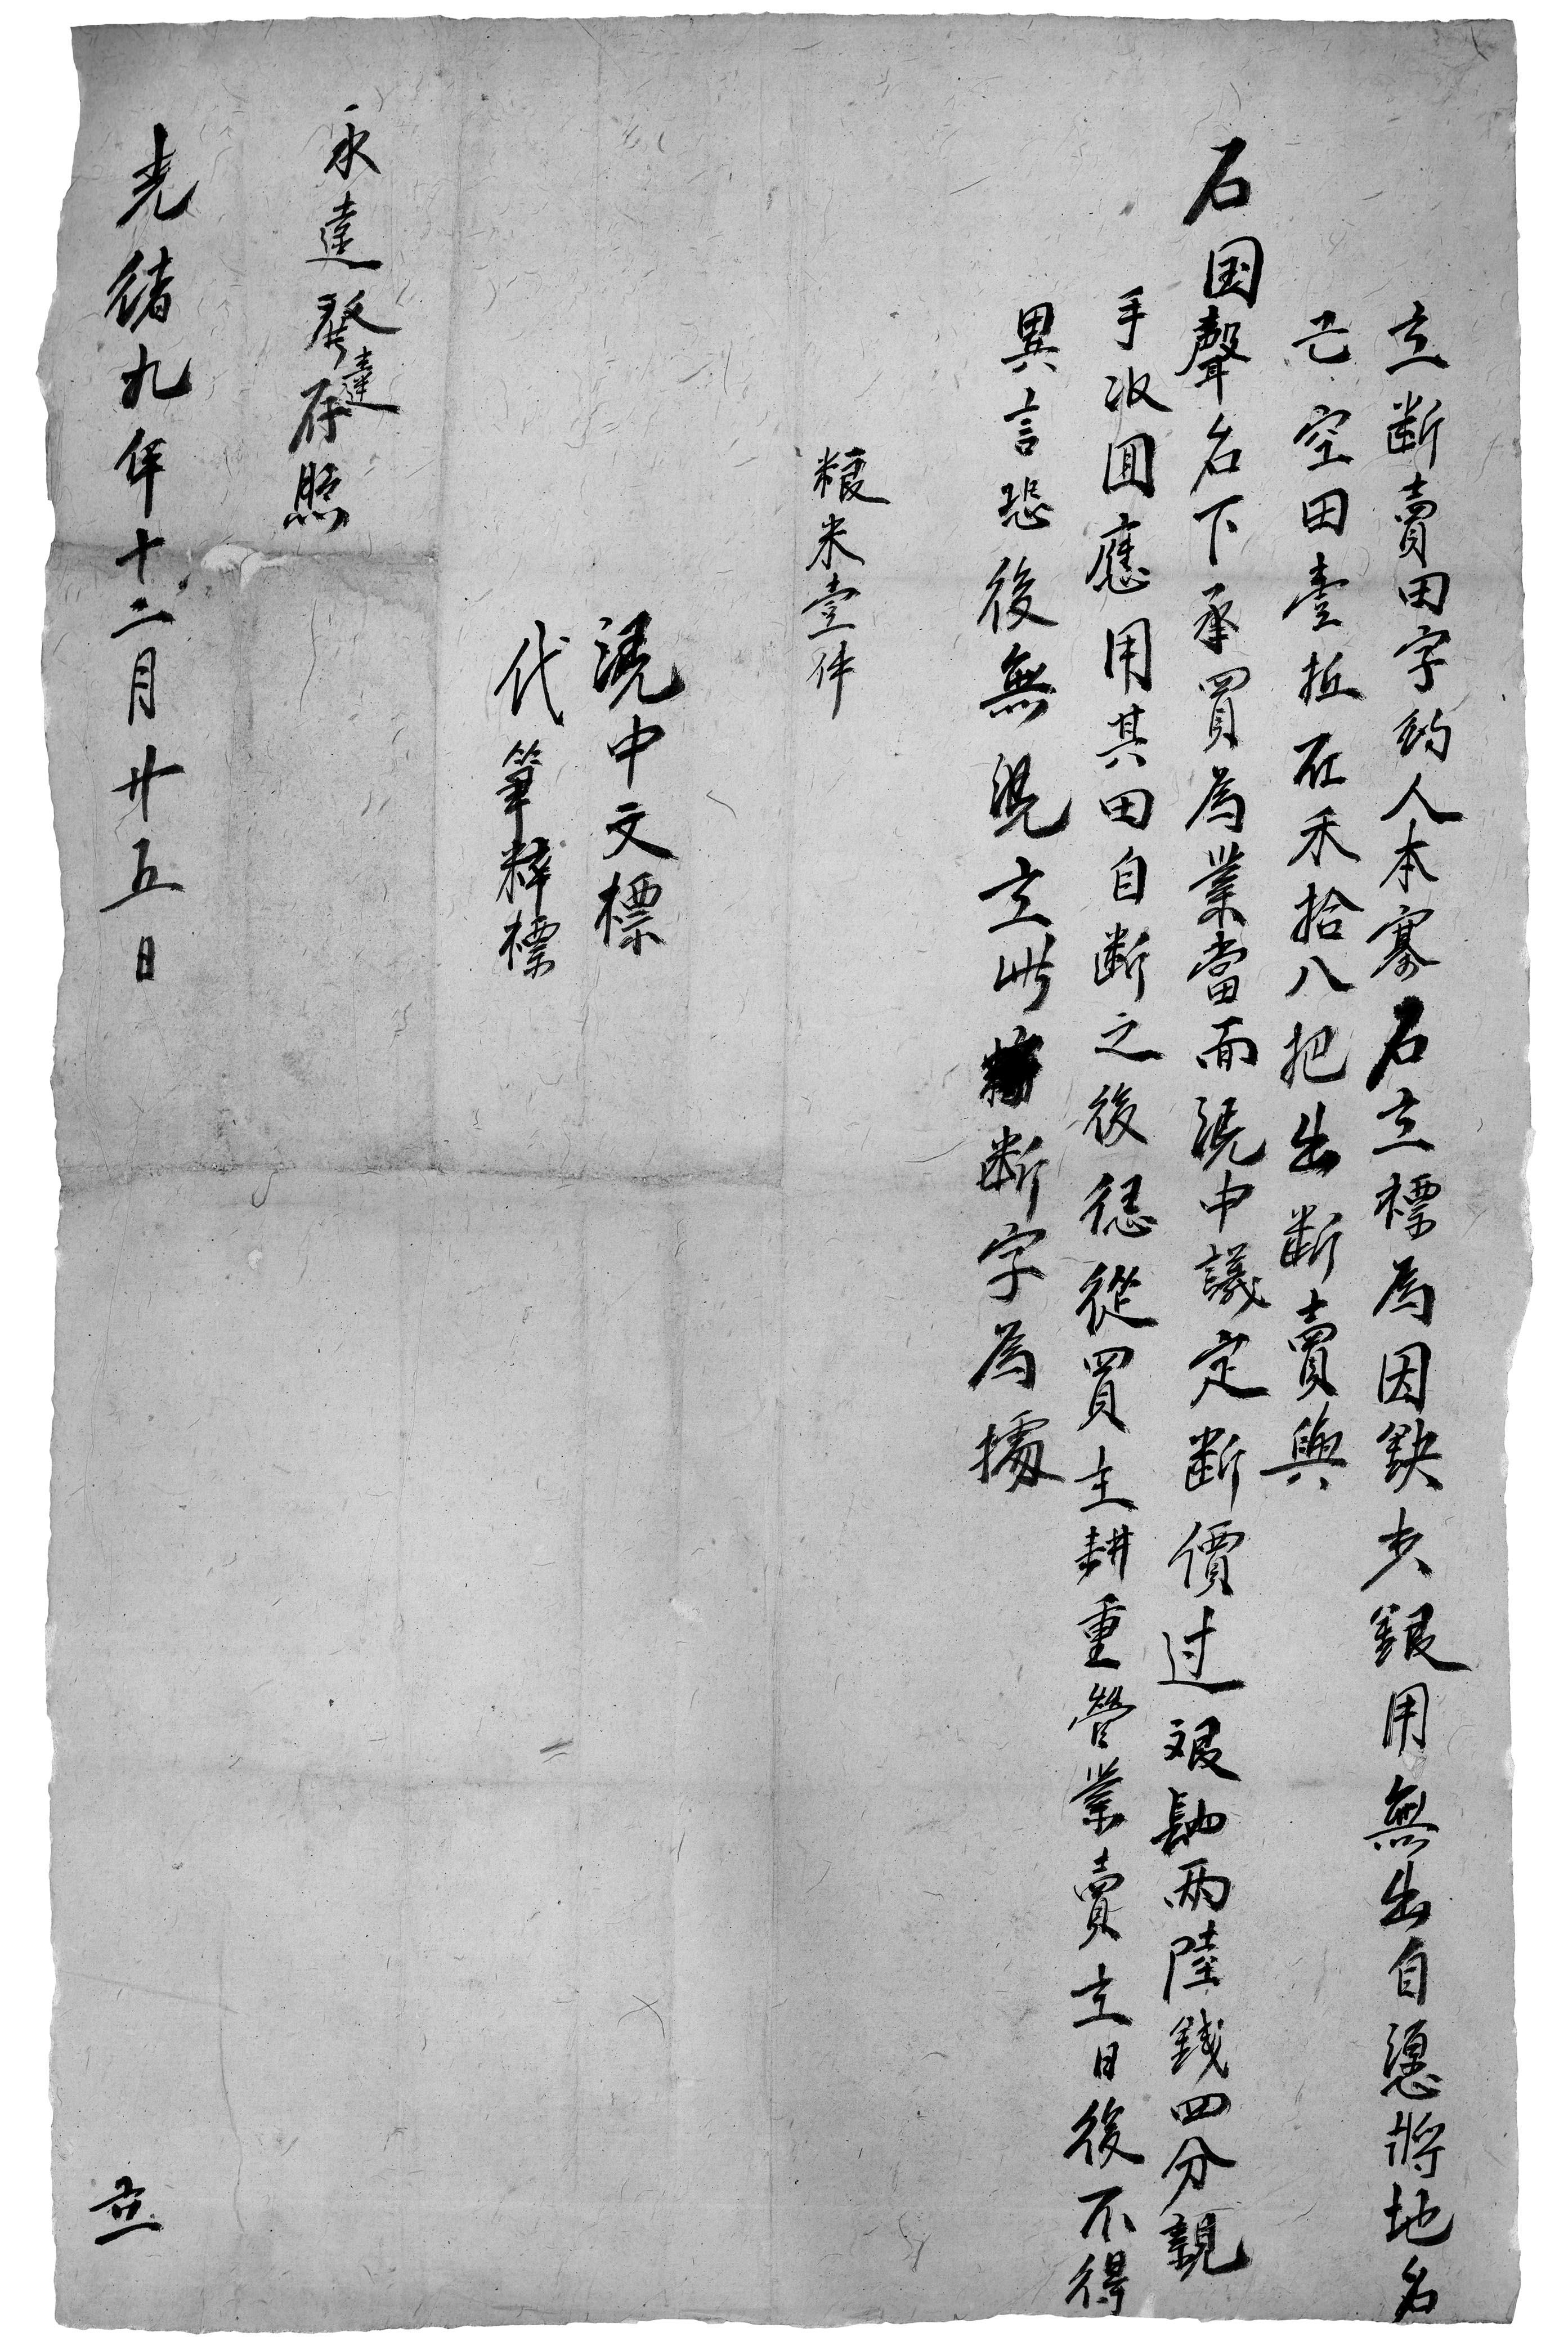 立断賣田字約人本寨石立標為因缺少銀用無出自愿將地名
己空田壹坵在禾拾八把出断賣與
石国聲名下承買為業當面凴中議定断價过艮肆两陸錢四分親
手收回應用其田自断之後任從買主耕重營業賣主日後不得
異言恐後無凴立此断字為據
粮米壹件
凴中文標
代筆粹標
永遠發達存照
光緒九年十二月廿五日 立